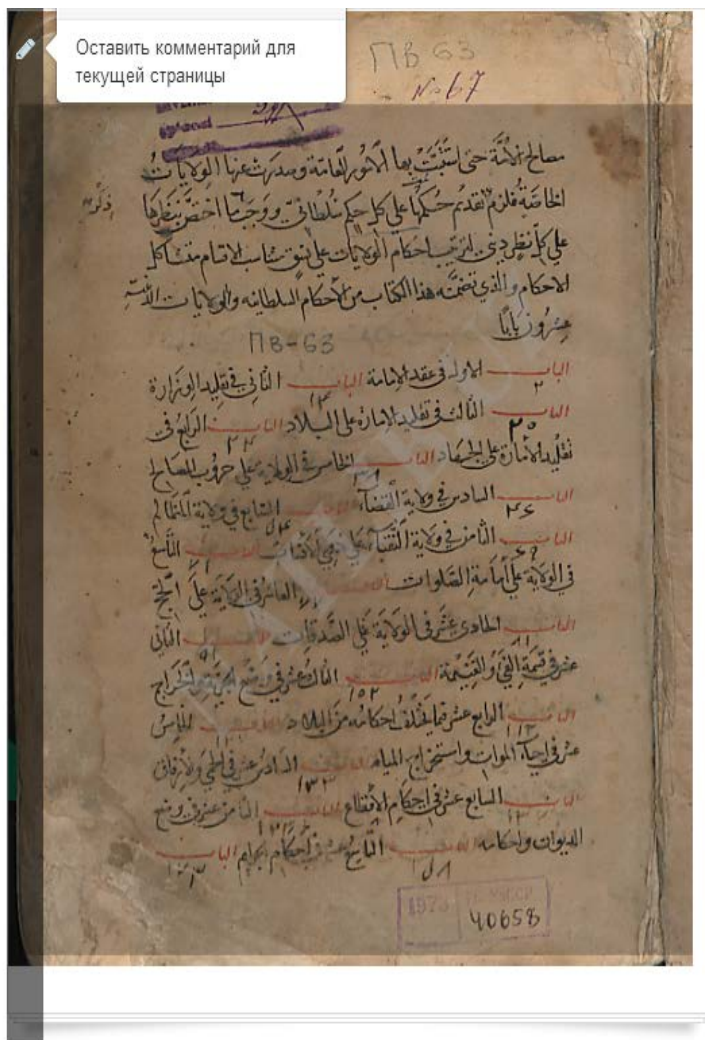 Оставить комментарий для
текущей страницы
ПВ 63
№ 67
مصالح الأمة حتى استثبتت بها الأمور العامة وصدرت عنها الولايات
الخاصة فلزم تقديم حكمها على كل حكم سلطاني ووجب ما اختص بنظرها
على كل نظر ديني لترتيب احكام الولايات على نسق متناسب الاقسام متشاكل
الاحكام والذي تضمنه هذا الكتاب من الأحكام السلطانية والولايات الدينية
عشرون بابا
ПВ-63
الباب الاول في عقد الإمامة الباب الثاني في تقليد الوزارة
الباب الثالث في تقليد الإمارة على البلاد الباب الرابع في
تقليد الأمارة على الجهاد الباب الخامس في الولاية على حروب المصالح
الباب السادس في ولاية القضاء الباب السابع في ولاية المظالم
الباب الثامن في ولاية النقباء على ذوي الأنساب الباب التاسع
في الولاية على امامة الصلوات الباب العاشر في الولاية على الحج
الباب الحادى عشر في الولاية على الصدقات الباب الثاني
عشر في قسمة الفيء والغنيمة الباب الثالث عشر في وضع الجزية والخراج
الباب الرابع عشر فيما يختلف احكامه من البلاد الباب الخامس
عشر في احياء الموات واستخراج المياه الباب السادس عشر في الحمى والارفاق
الباب السابع عشر في احكام الأقطاع الباب الثامن عشر في وضع
الديوان واحكامه الباب التاسع عشر في أحكام الجرائم الباب
1973
40658